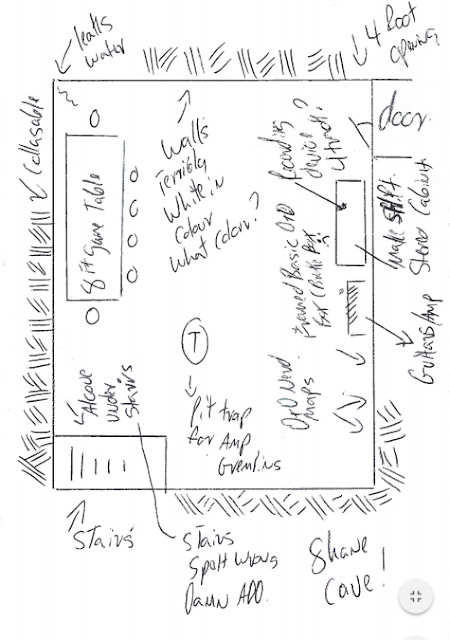 leaks
water
4 foot
opening
door
Collasable
8 ft Game Table
Walls
Terribly
White in
Colour
What Colour?
Recording
device
Make Shift
Stereo Cabinet
Framed Basic D+D
Guitars/Amp
D+D Nerd
Maps
T
Pit trap
for Amp
Gremlins
Alcove
under
Stairs
Stairs
Stairs
Spelt wrong
Damn ADD.
Shane
Cave!